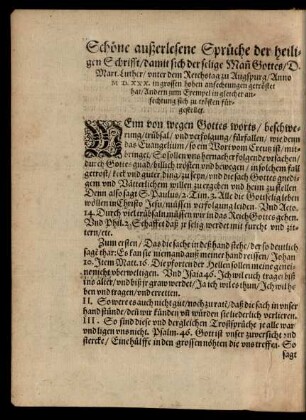 Schöne außerlesene Sprüche der heili-
gen Schrifft/damit sich der selige Mañ Gottes/D.
Mart. Luther/vnter dem Reichstag zu Augspurg/Anno
M D. XXX. in grossen hohen anfechtungen getröstet
hat/Andern zum Exempel in gleicher an-
fechtung sich zu trösten für-
gestellet.
WEnn von wegen Gottes worts/beschwe-
rung/trübsal/vnd verfolgung fürfallen/wie denn
das Euangelium/so ein Wort vom Creutz ist/mit-
bringet/So sollen vns hernacher folgende vrsachen/
durch Gottes gnad/billich trösten vnd bewegen/in solchem fall
getrost/keck vnd guter ding/zu seyn/vnd die sach Gottes gnedi-
gem vnd Väterlichem willen zu ergeben vnd heim zu stellen
Denn also sagt S. Paulus/2. Tim. 3. Alle die Gottselig leben
wöllen in Christo Jesu/müssen verfolgung leiden. Vnd Acto.
14. Durch viel trübsaln müssen wir in das Reich Gottes gehen.
Vnd Phil. 2. Schaffet daß jr selig werdet mit furcht vnd zit-
tern/etc.
Zum ersten/Das die sache in deß hand stehe/der so deutlich
sagt thar: Es kan sie niemand auß meiner hand reissen/Johan
10. Jtem Matt. 16. Die pforten der Hellen sollen meine gemei-
ne nicht vberweltigen. Vnd Jsaia 46. Jch wil euch tragen biß
ins alter/vnd biß jr graw werdet/Ja ich wil es thun/Jch wil he-
ben vnd tragen/vnd erretten.
II. So were es auch nicht gut/noch zu rate/daß die sach in vnser
hand stünde/deñ wir künden vñ würden sie liederlich verlieren.
III. So sind diese vnd dergleichen Trostsprüche je alle war
vnd ligen vns nicht. Psalm. 46. Gott ist vnser zuuersicht vnd
stercke/Eine hülffe in den grossen nöhten die vns troffen. So
sagt